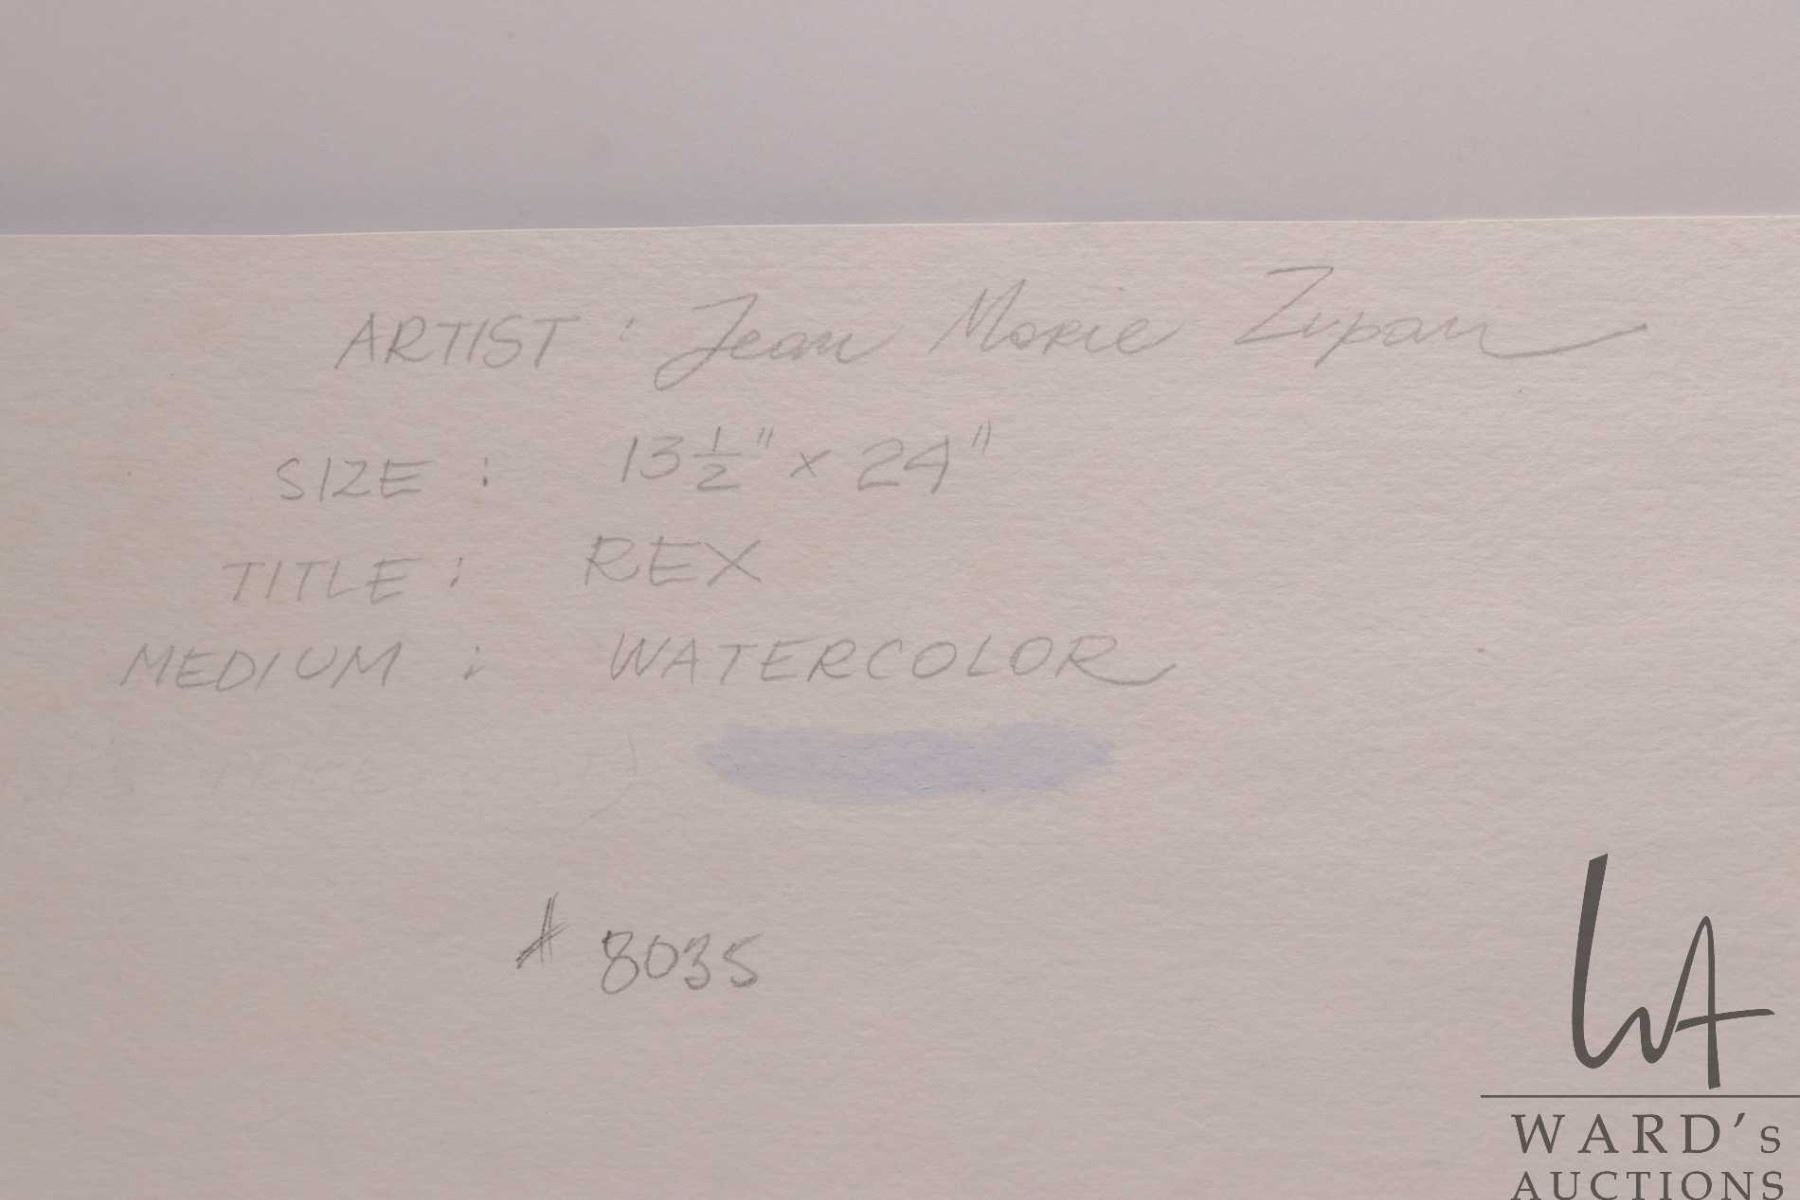 ARTIST : Jean Marie Zupan
SIZE : 13 1/2" x 24"
TITLE : REX
MEDIUM : WATERCOLOR
# 8035
WA
WARD's
AUCTIONS